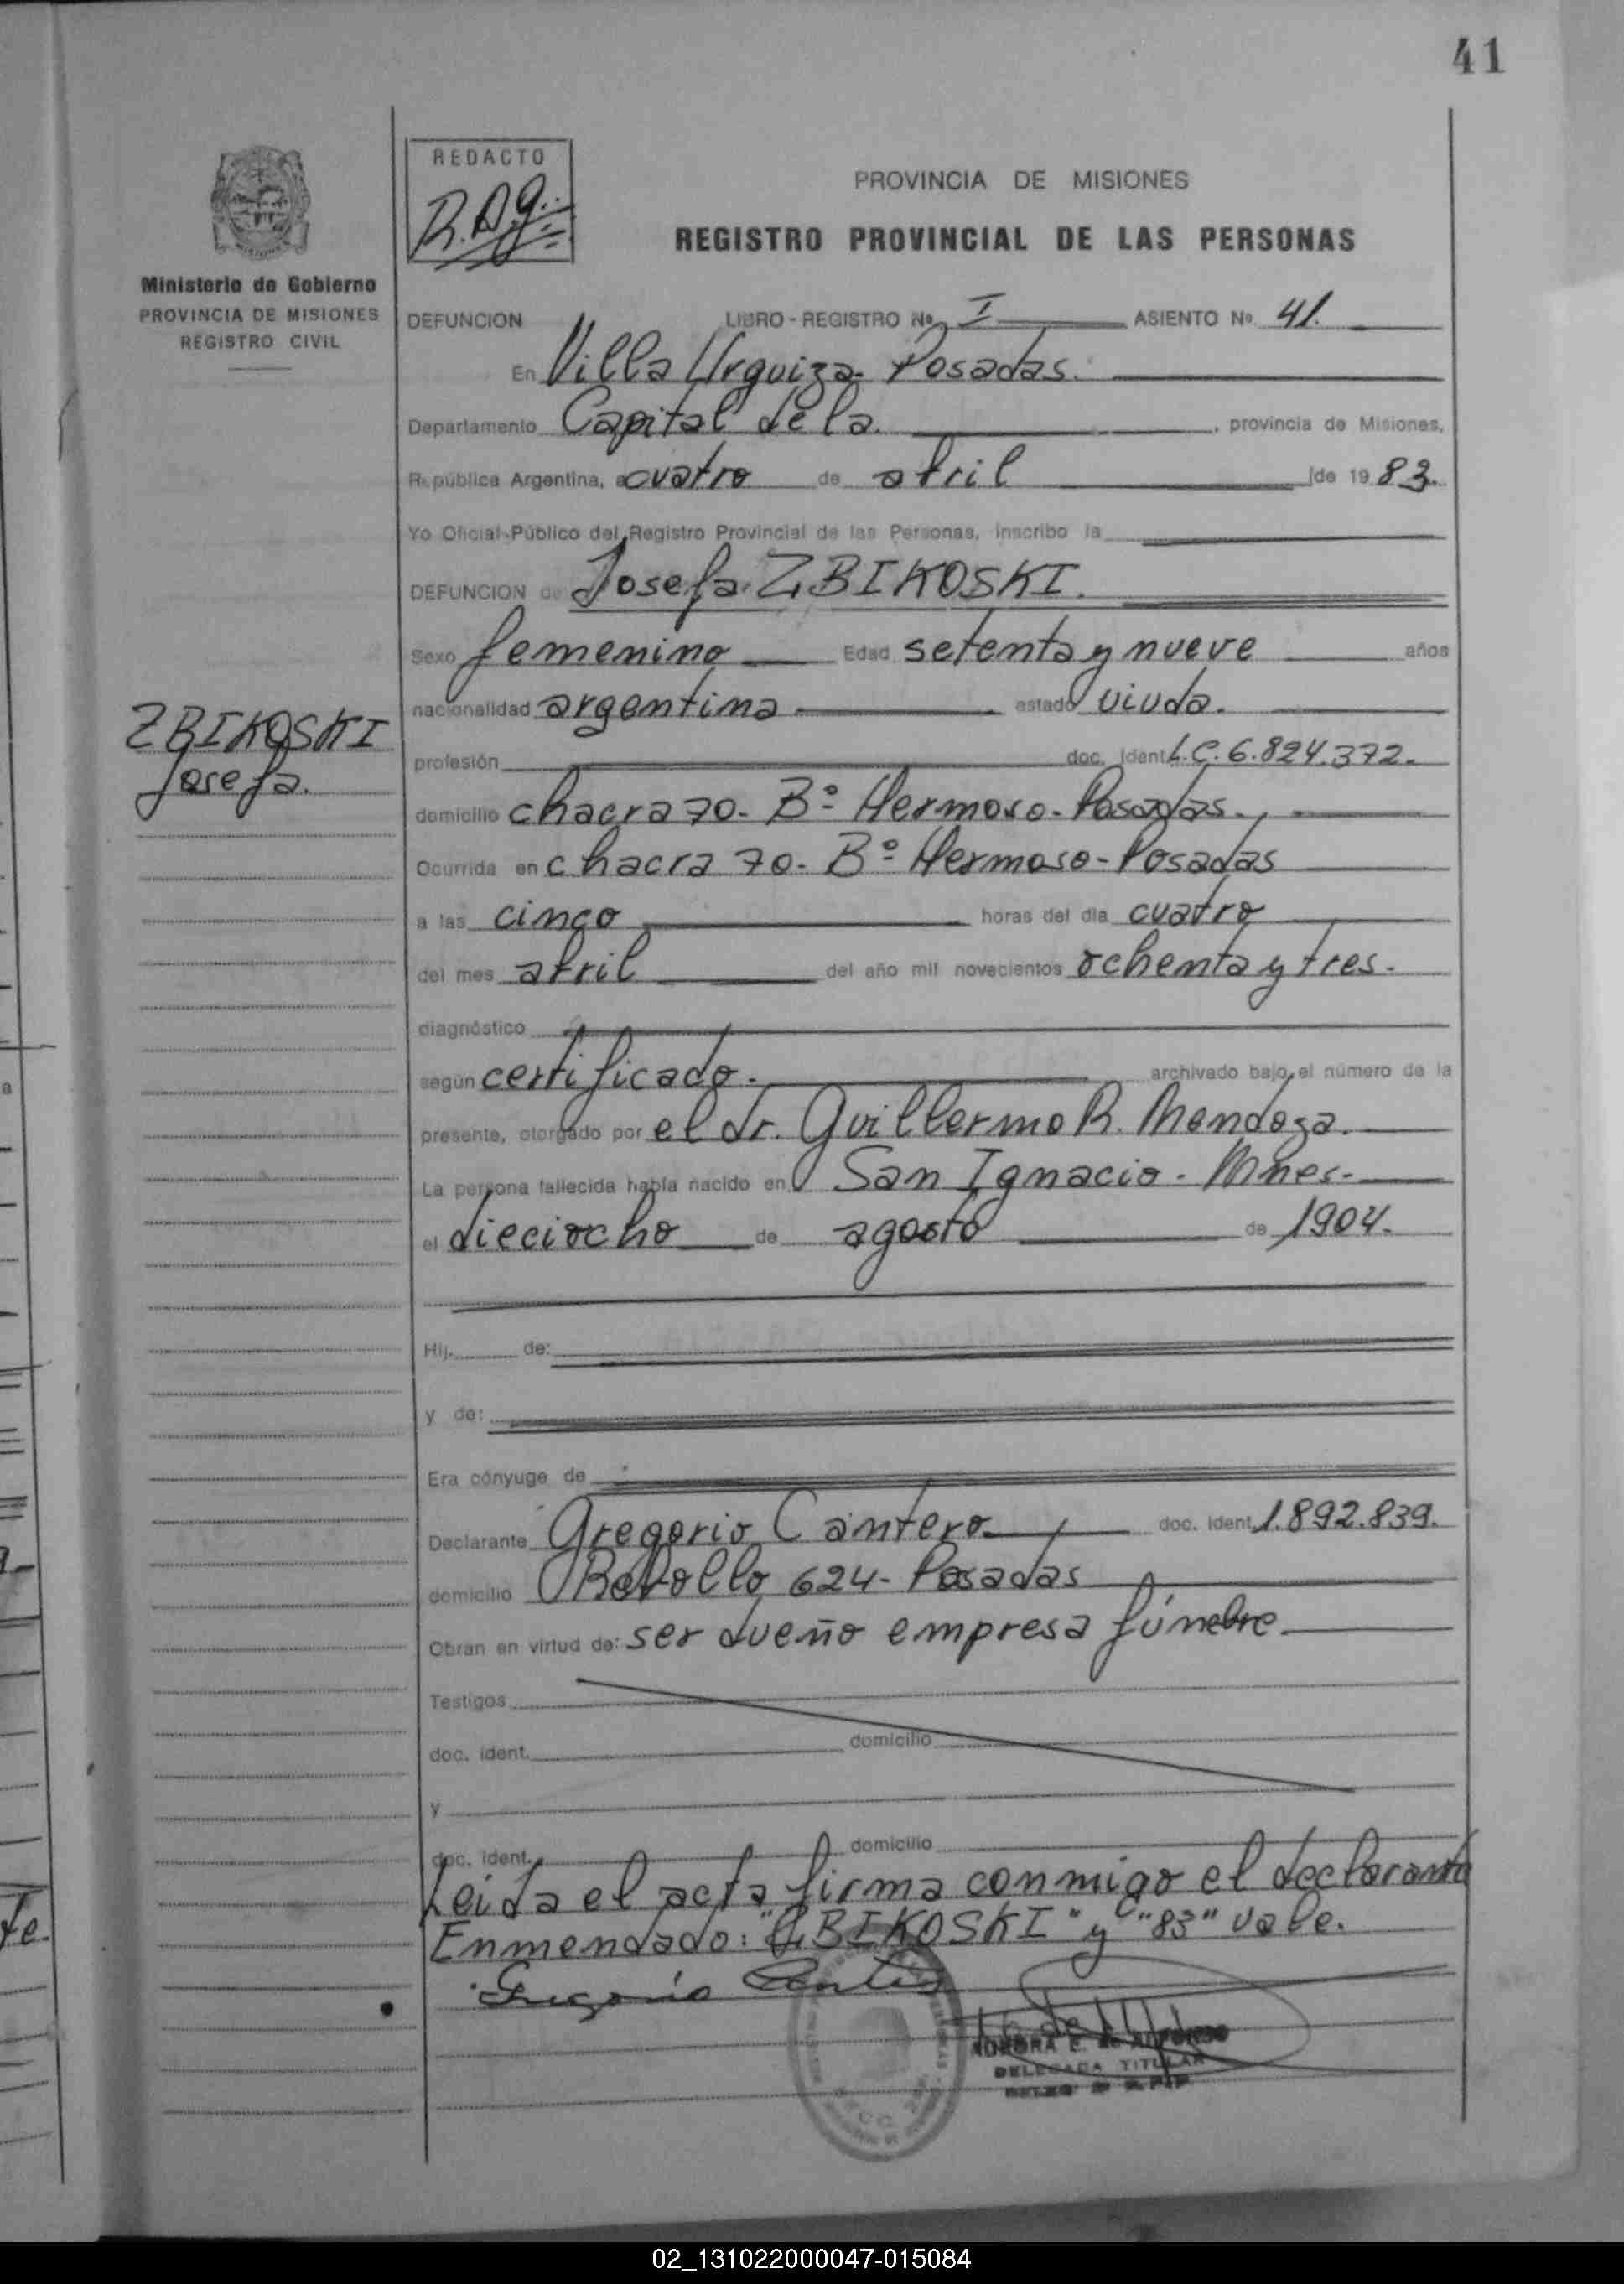 41
REDACTO
R.A.g.
PROVINCIA DE MISIONES
REGISTRO PROVINCIAL DE LAS PERSONAS
Ministerio de Gobierno
PROVINCIA DE MISIONES
REGISTRO CIVIL
DEFUNCION LIBRO - REGISTRO No I ASIENTO No 41.
En Villa Urquiza - Posadas.
Departamento Capital de la. , provincia de Misiones,
República Argentina, a cuatro de abril de 19 83.
Yo Oficial Público del Registro Provincial de las Personas, inscribo la
DEFUNCION de Josefa ZBIKOSKI.
Sexo femenino Edad setenta y nueve años
nacionalidad argentina estado viuda.
ZBIKOSKI
Josefa.
profesión doc. Ident. L.C. 6.824.372.
domicilio chacra 70 - Bº Hermoso - Posadas.
Ocurrida en chacra 70 - Bº Hermoso - Posadas
a las cinco horas del día cuatro
del mes abril del año mil novecientos ochenta y tres.
diagnóstico
según certificado. archivado bajo el número de la
presente, otorgado por el dr. Guillermo R. Mendoza.
La persona fallecida había nacido en San Ignacio - Mnes.
el dieciocho de agosto de 1904.
Hij. de:
y de:
Era cónyuge de
Declarante Gregorio Cantero doc. ident. 1.892.839.
domicilio 624 - Posadas
Obran en virtud de: ser dueño empresa fúnebre
Testigos
doc. ident. domicilio
y
doc. ident. domicilio
Leída el acta firma conmigo el declarante
Enmendado: "ZBIKOSKI" y "83" vale.
Gregorio
AURORA E. de
DELEGADA TITULAR
02_131022000047-015084